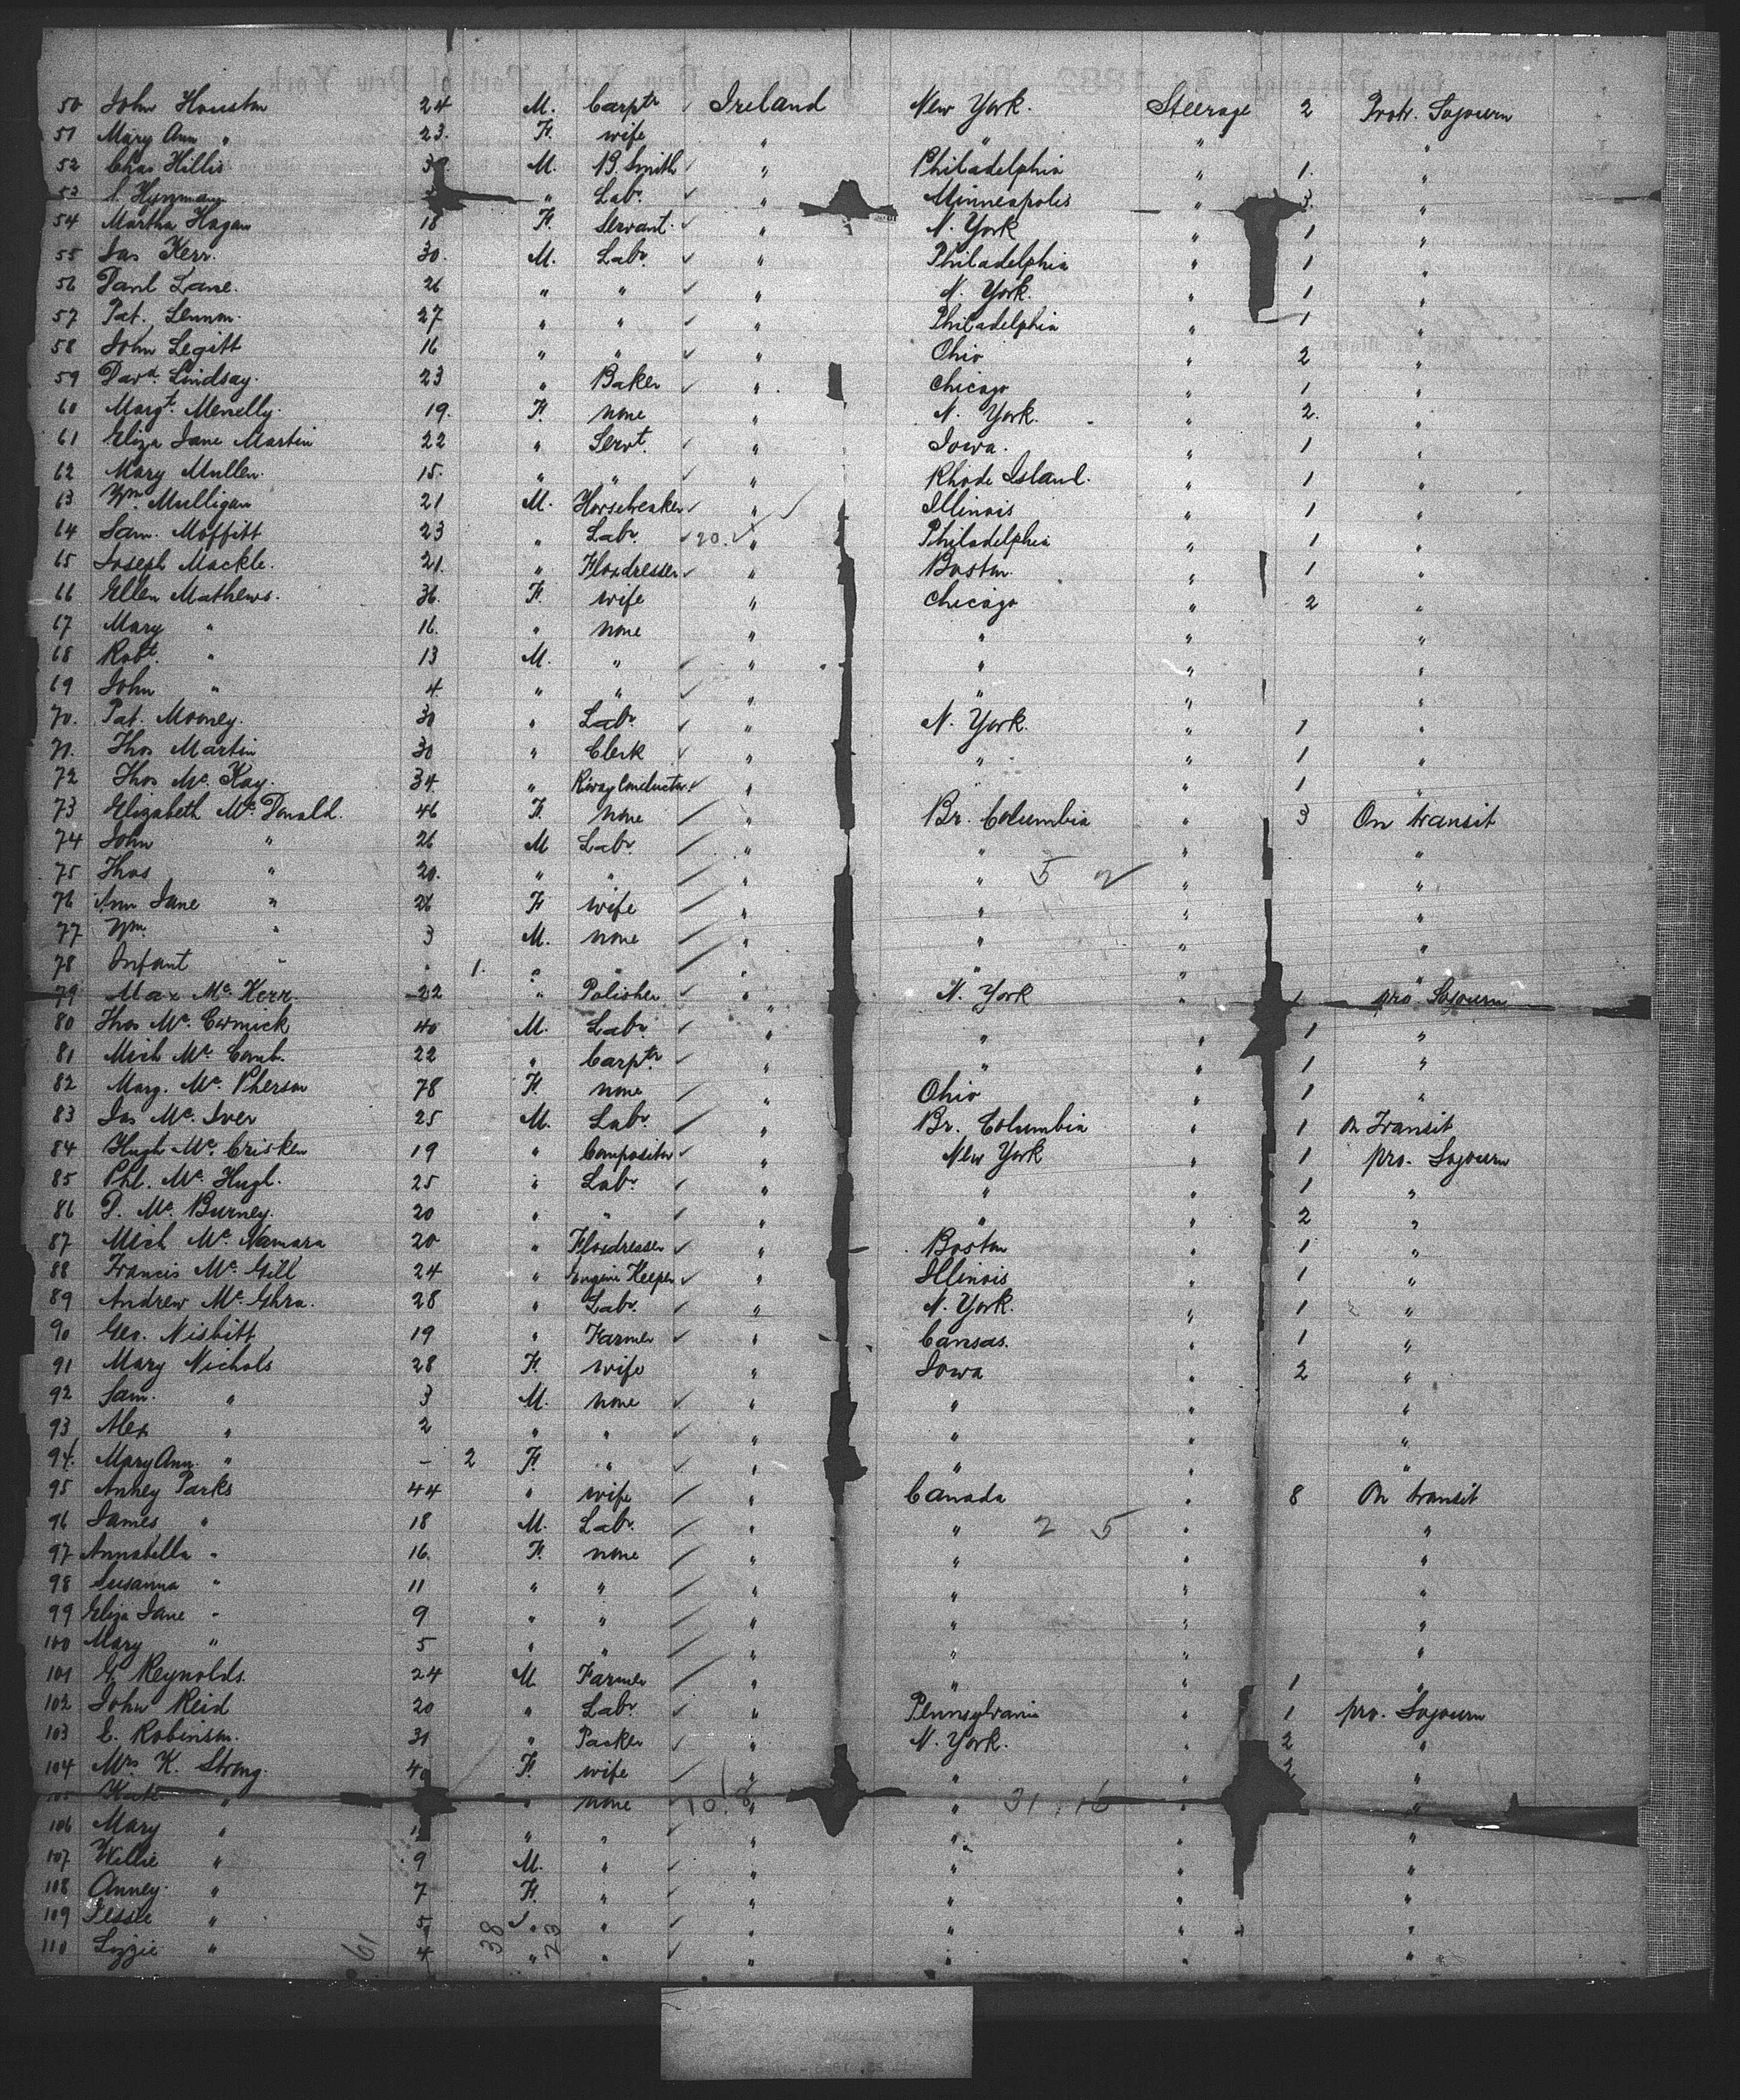 50 John Houston 24 M. Carptr Ireland New York. Steerage 2 Protr. Sojourn
51 Mary Ann " 23. F. wife " " " "
52 Chas Hillis 3 M. B. Smith " Philadelphia " 1. "
53 Hynman " Labr. " Minneapolis " 3. "
54 Martha Hagan 18 F. Servant. " N. York " 1 "
55 Jas Kerr. 30. M. Labr. " Philadelphia " 1 "
56 Paul Lane. 26 " " " N. York. " 1 "
57 Pat. Lennon. 27 " " " Philadelphia " 1 "
58 John Legitt 16 " " " Ohio " 2 "
59 Davd. Lindsay. 23 " Baker " Chicago " 1 "
60 Margt. Menelly. 19. F. none " N. York. " 2. "
61 Eliza Jane Martin 22 " Servt. " Iowa. " 1 "
62 Mary Mullen. 15. " " " Rhode Island. " 1 "
63 Wm. Mulligan 21 M. Horsebreaker " Illinois " 1 "
64 Sam. Moffitt 23 " Labr. 20. " Philadelphia " 1 "
65 Joseph Mackle. 21. " Flaxdresser " Boston. " 1 "
66 Ellen Mathews. 36. F. wife " Chicago " 2 "
67 Mary " 16. " none " " " "
68 Robt. " 13 M. " " " " "
69 John " 4 " " " " " "
70. Pat. Mooney. 30 " Labr. " N. York. " 1 "
71. Thos Martin 30 " Clerk " " " 1 "
72 Thos Mc. Kay. 34. " Rway Conductor " " 1 "
73 Elizabeth Mc. Donald. 46 F. none " Br. Columbia " 3 On transit
74 John " 26 M Labr. " " " "
75 Thos " 20. " " " " 5 2 " "
76 Ann Jane " 26 F. wife " " " "
77 Wm. " 3 M. none " " " "
78 Infant " 1. " " " " " "
79 Max Mc. Kerr. 22 " Polisher " N. York " 1 pro Sojourn
80 Thos Mc. Cormick 40 M. Labr. " " " 1 "
81 Mich Mc. Comb. 22 " Carptr. " " " 1 "
82 Marg. Mc. Pherson 78 F. none " Ohio " 1 "
83 Jas Mc. Iver 25 M. Labr. " Br. Columbia " 1 On Transit
84 Hugh Mc. Crisken 19 " Compositor " New York " 1 pro. Sojourn
85 Phl. Mc. Hugh. 25 " Labr. " " " 1 "
86 P. Mc. Burney. 20 " " " " " 2 "
87 Mich Mc. Namara 20 " Flaxdresser " Boston " 1 "
88 Francis Mc. Gill 24 " Engine Keeper " Illinois " 1 "
89 Andrew Mc. Ghra. 28 " Labr. " N. York. " 1 "
90 Geo. Nisbitt 19 " Farmer " Cansas. " 1 "
91 Mary Nichols 28 F. wife " Iowa " 2 "
92 Sam. " 3 M. none " " " "
93 Alex " 2 " " " " " "
94. Mary Ann. " - 2 F. " " " " "
95 Anney Parks 44 " wife " Canada " 8 On transit
96 James " 18 M. Labr. " " 2 5 " "
97 Annabella " 16. F. none " " " "
98 Susanna " 11 " " " " " "
99 Eliza Jane " 9 " " " " " "
100 Mary " 5 " " " " " "
101 G. Reynolds. 24 M. Farmer " " " 1 "
102 John Reid 20 " Labr. " Pennsylvania " 1 pro. Sojourn
103 E. Robinson. 31 " Packer " N. York. " 2 "
104 Mrs K. Strong. 40 F. wife " " " 2 "
105 Kate " " none " " 31 " "
106 Mary " " " " " " "
107 Willie " 9 M. " " " " "
108 Anney. " 7 F. " " " " "
109 Jessie " 5 " " " " " "
110 Lizzie " 4 " " " " " "
61 38 23